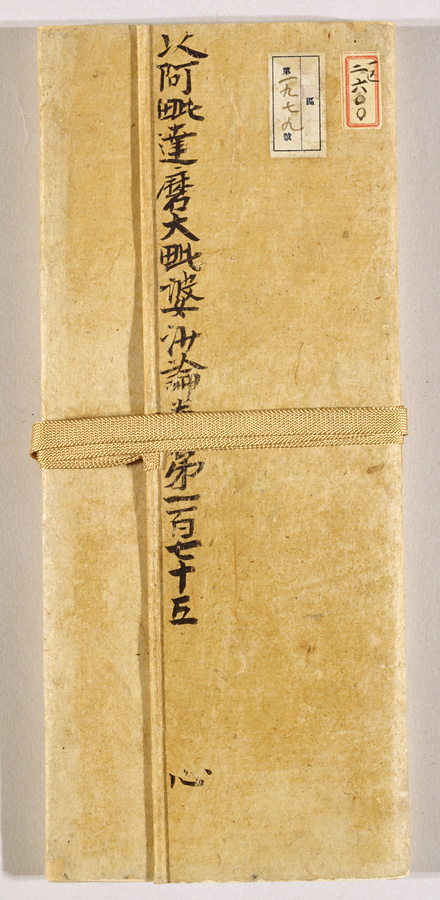 二六〇〇
區
第一九七九號
以阿毗達磨大毗婆沙論卷第一百七十五
心